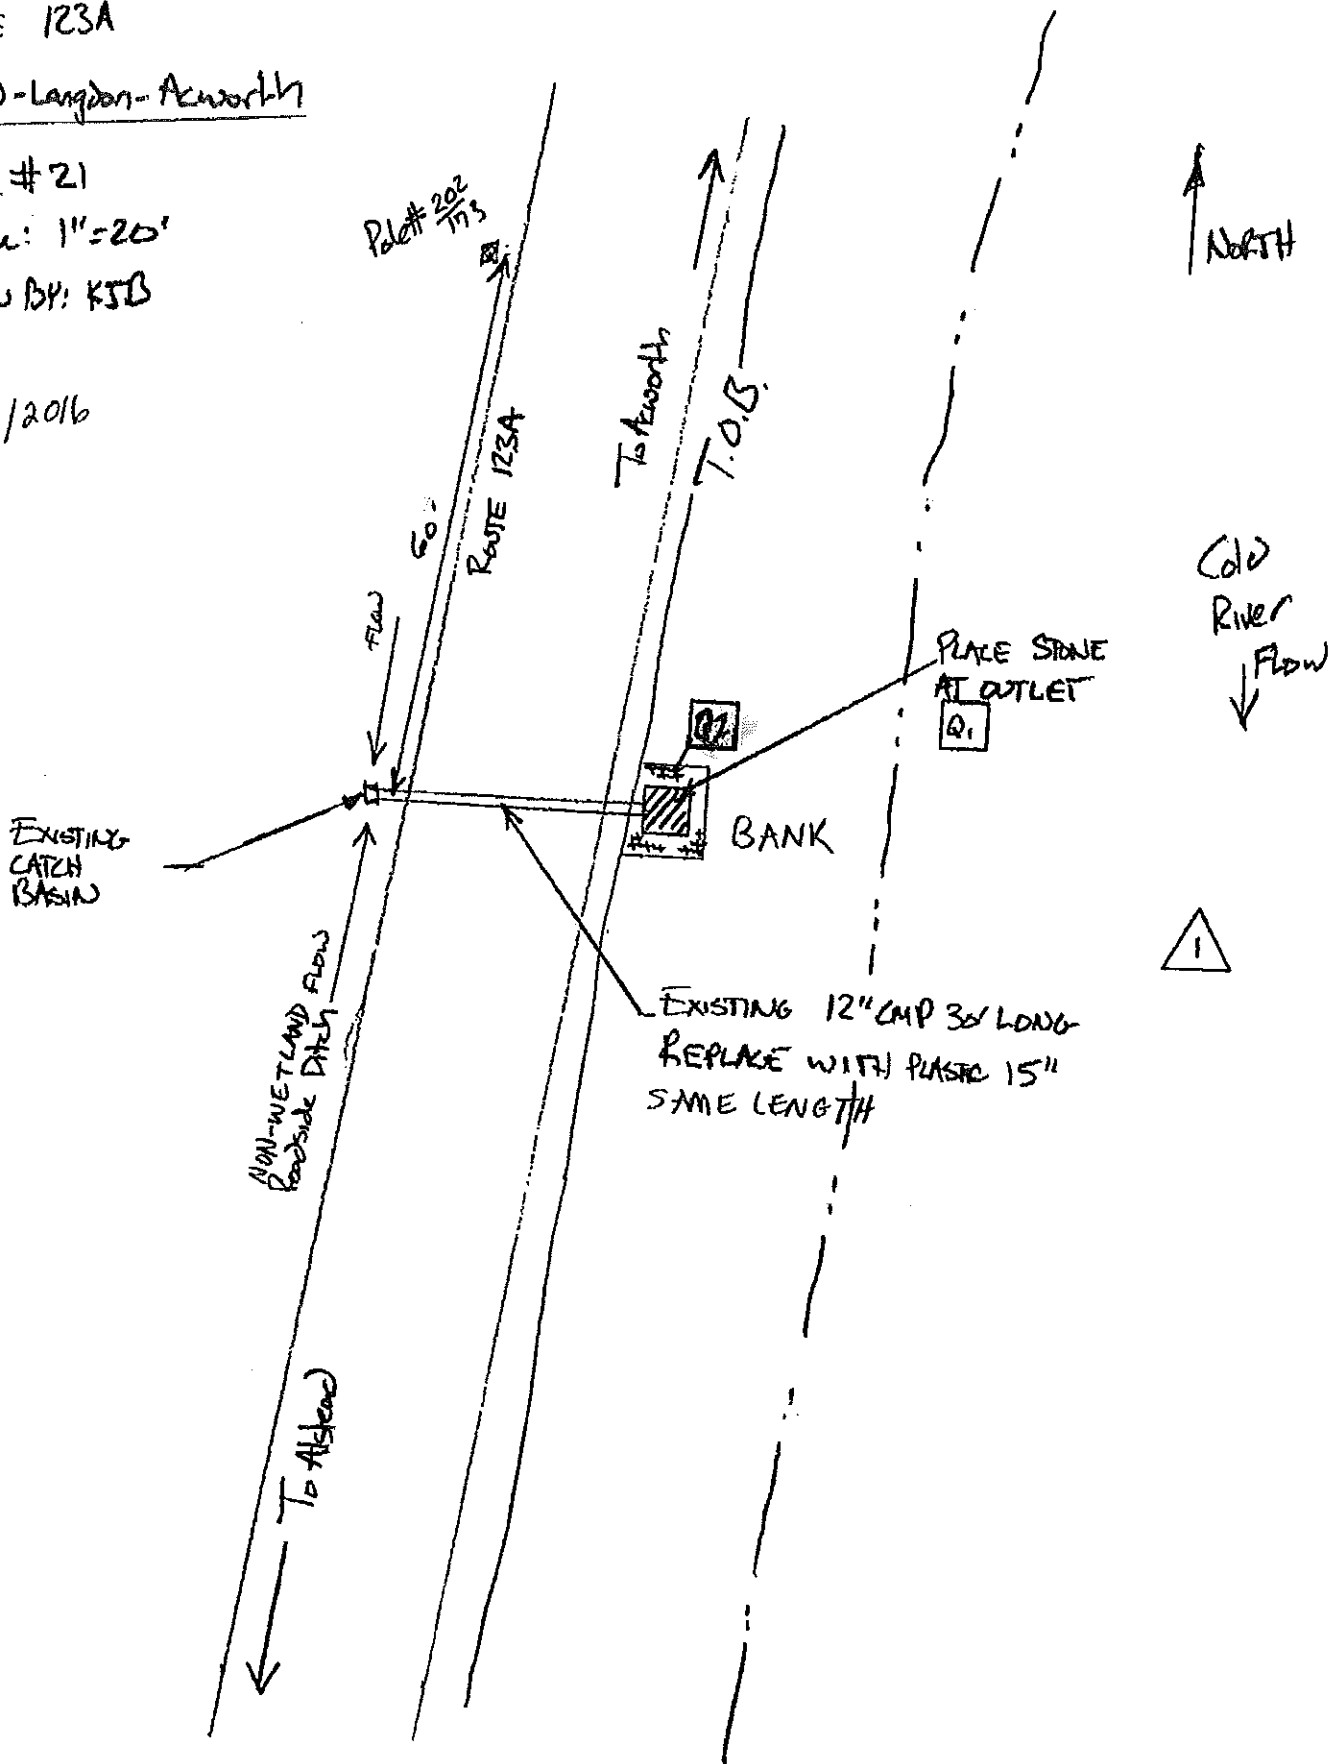 123A
-Langdon-Acworth
#21
: 1"=20'
BY: KJB
/2016
Pole# 202/173
NORTH
To Acworth
T.O.B.
ROUTE 123A
60'
FLOW
Cold
River
FLOW
PLACE STONE
AT OUTLET
Q1
BANK
EXISTING
CATCH
BASIN
1
NON-WETLAND FLOW
Roadside Ditch
EXISTING 12" CMP 30' LONG
REPLACE WITH PLASTIC 15"
SAME LENGTH
To Alstead